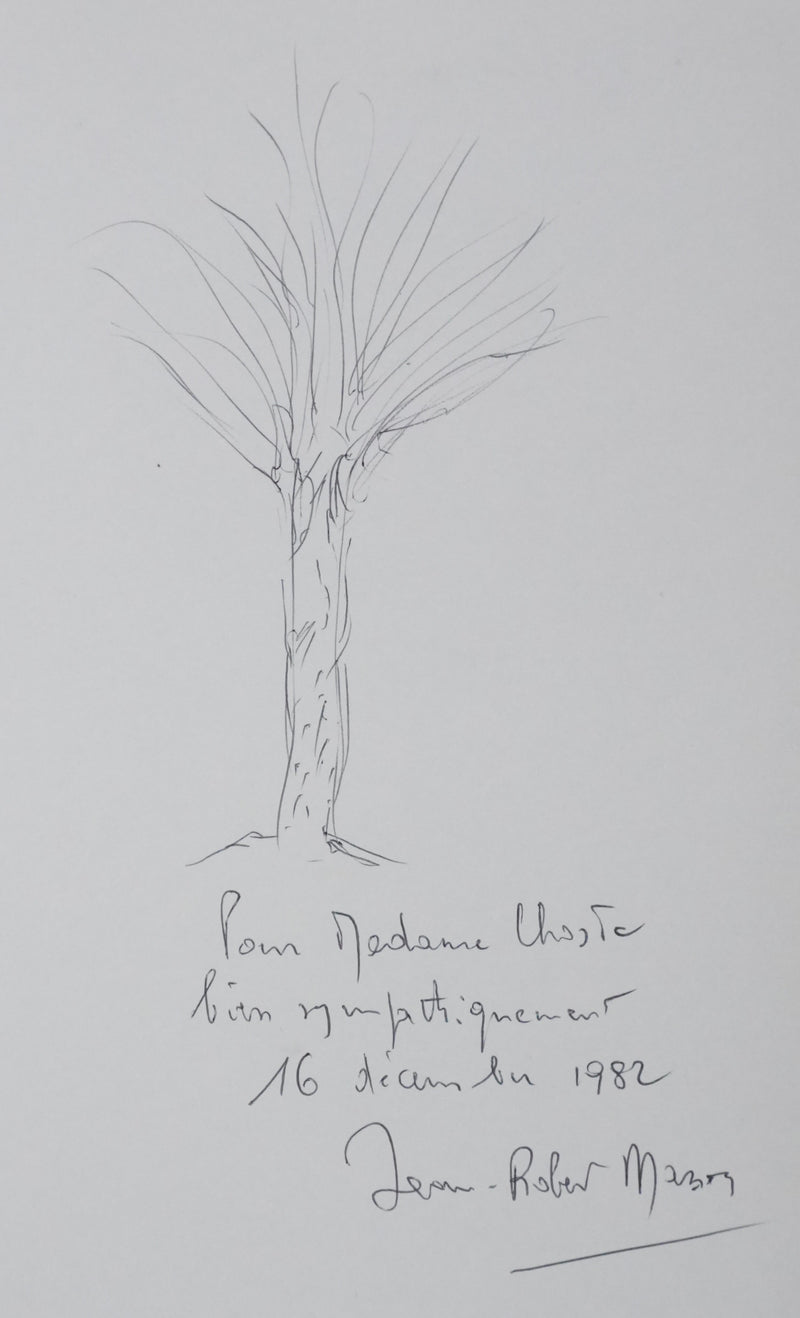 Pour Madame
bien sympathiquement
16 décembre 1982
Jean-Robert Masson